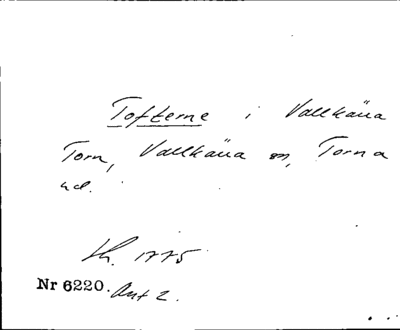 Tofterne i Vallkära
Torn, Vallkära sn, Torna
hd.
Kh. 1775
Nr 6220. Ant 2.